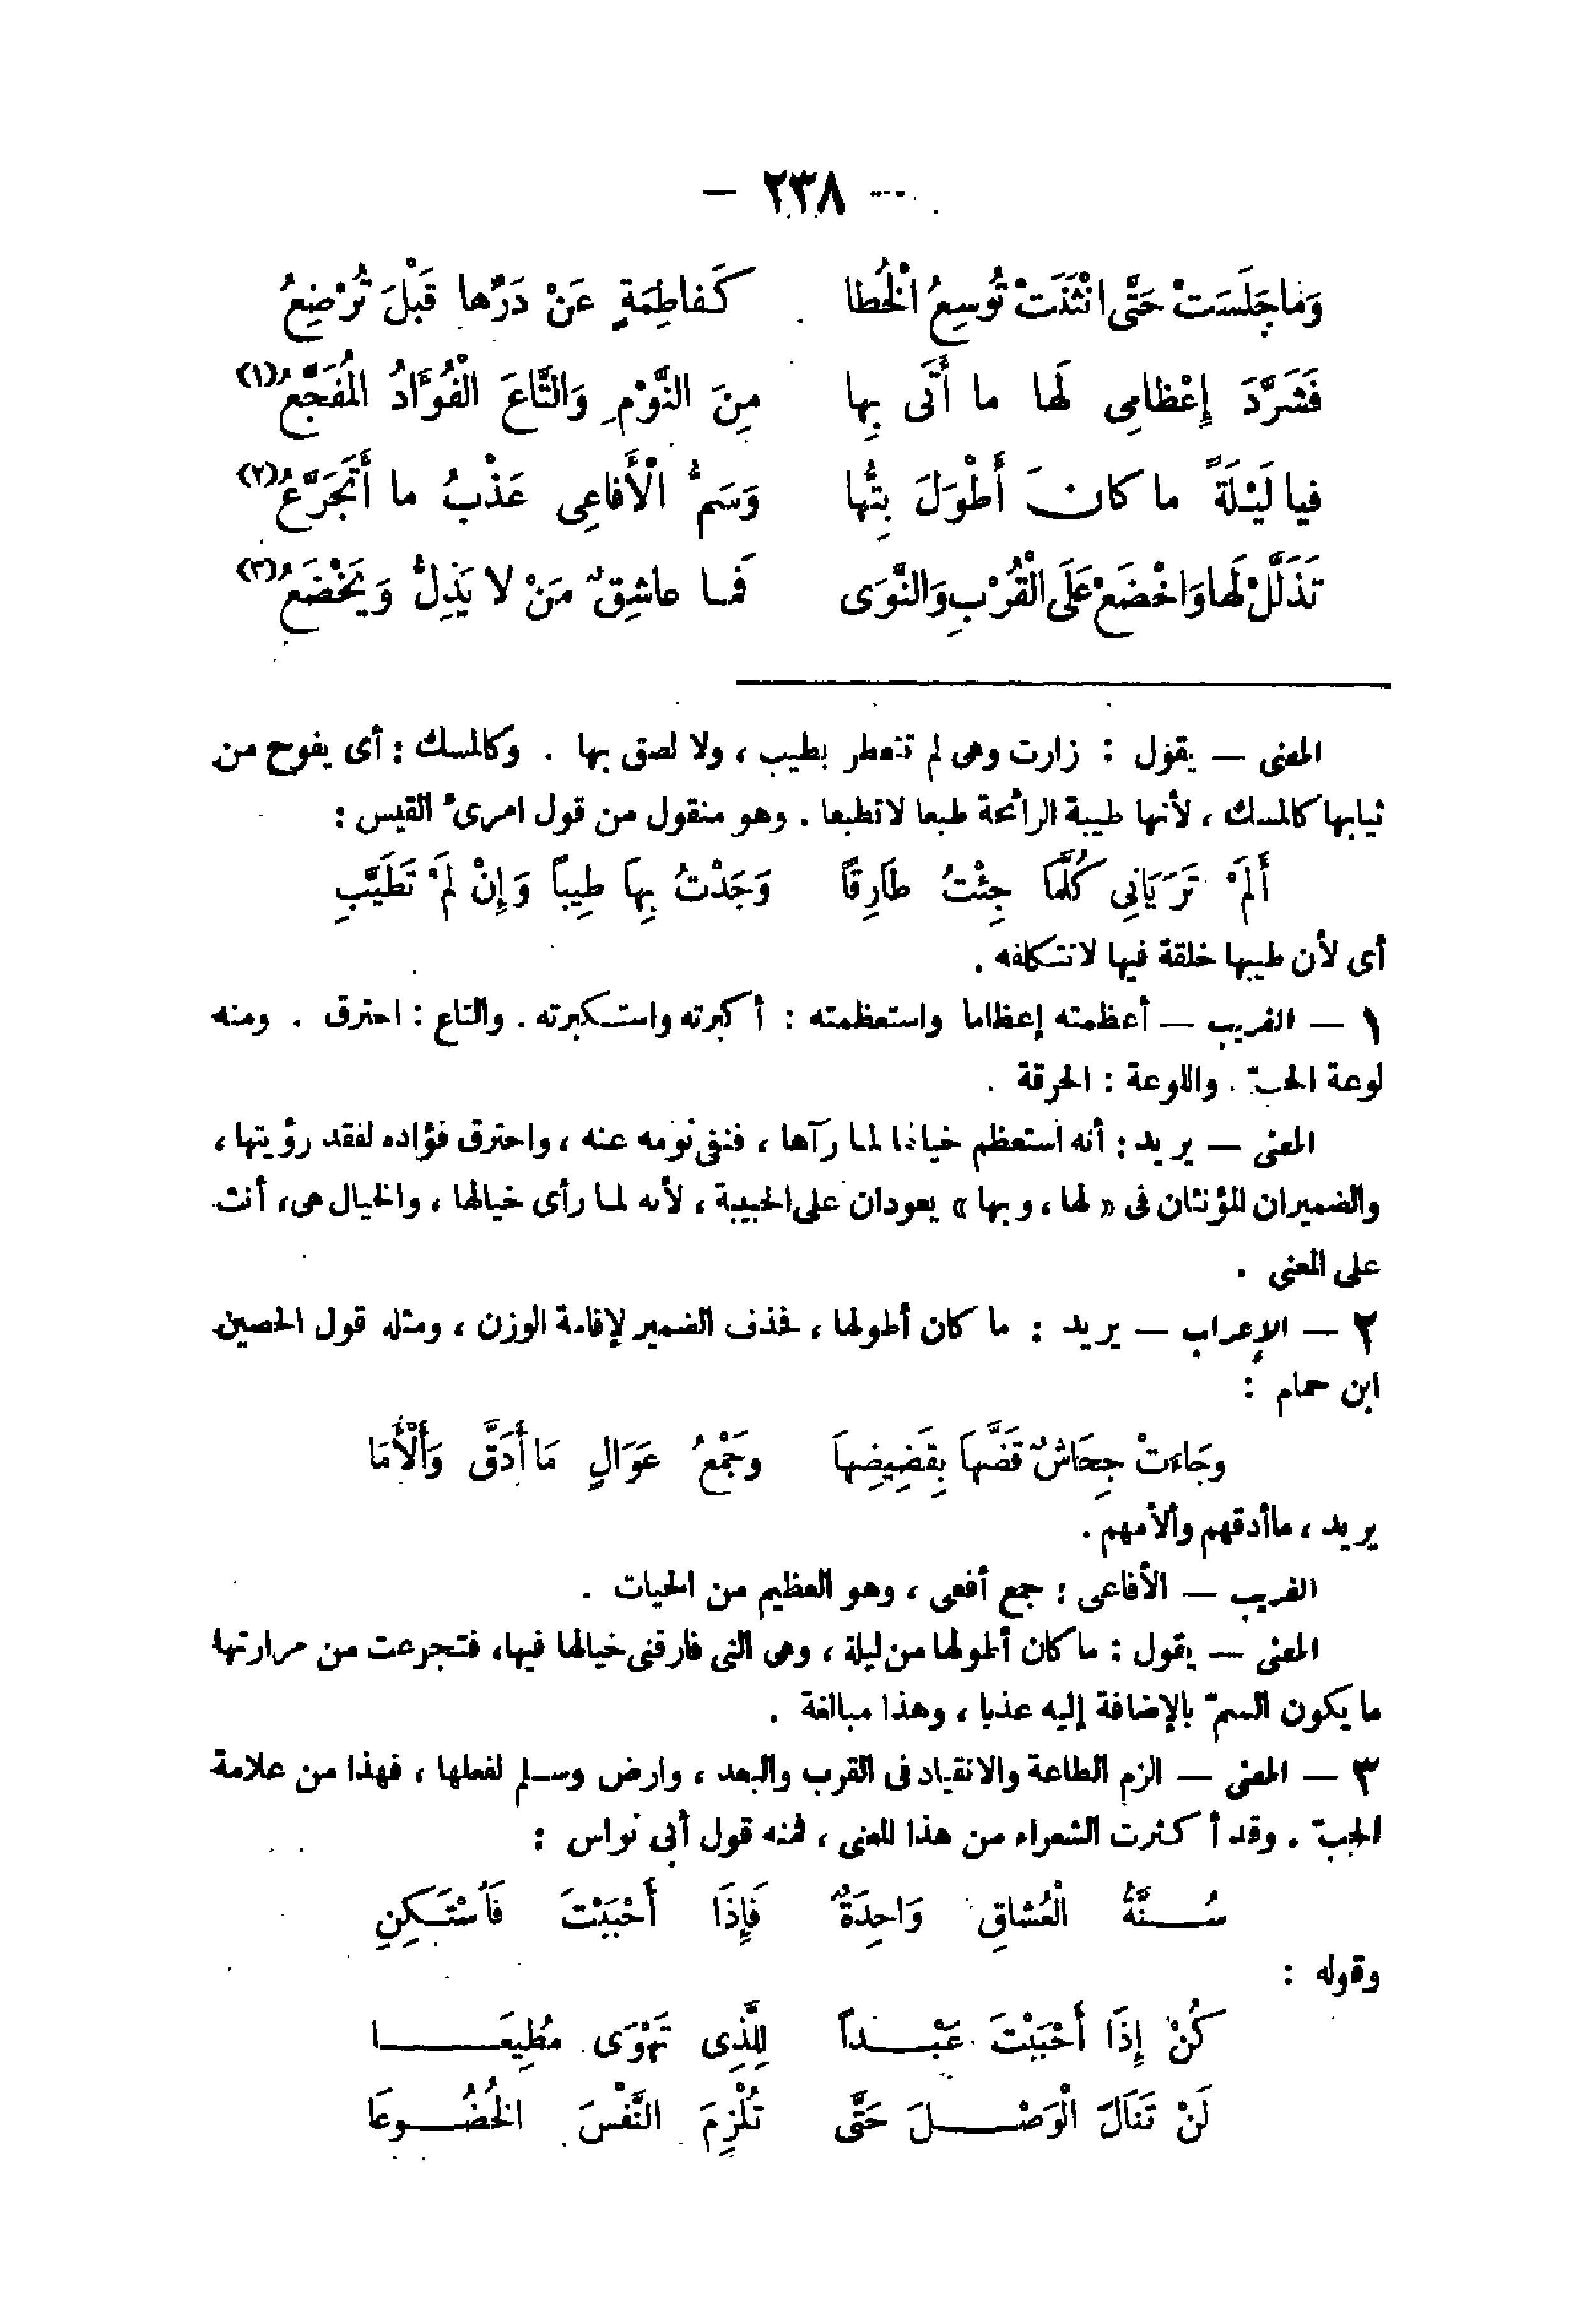 — ٢٣٨ —
وَمَا جَلَسَتْ حَتَّى انْثَنَتْ تُوسِعُ الْخُطا كَفاطِمَةٍ عَنْ دَرِّها قَبْلَ تُرْضِعُ
فَشَرَّدَ إِعْظامِى لَها ما أَتَى بِها مِنَ النَّوْمِ وَالْتَاعَ الْفُؤَادُ الْمُفَجَّعُ (١)
فيا لَيْلَةً ما كانَ أَطْوَلَ بِتُّها وَسَمُّ الْأَفاعِى عَذْبُ ما أَتَجَرَّعُ (٢)
تَذَلَّلْ لَها وَاخْضَعْ عَلَى الْقُرْبِ وَالنَّوَى فَمـا عاشِقٌ مَنْ لا يَذِلُّ وَيَخْضَعُ (٣)
المعنى — يقول : زارت وهى لم تتعطر بطيب ، ولا لصق بها . وكالمسك : أى يفوح من
ثيابها كالمسك ، لأنها طيبة الرائحة طبعا لا تطبعا . وهو منقول من قول امرئ القيس :
أَلَمْ تَرَيَانِى كُلَّمَا جِئْتُ طَارِقًا وَجَدْتُ بِهَا طِيباً وَإِنْ لَمْ تَطَيَّبِ
أى لأن طيبها خلقة فيها لا تتكلفه .
١ — الغريب — أعظمته إعظاما واستعظمته : أكبرته واستكبرته . والتاع : احترق . ومنه
لوعة الحبّ . واللوعة : الحرقة .
المعنى — يريد : أنه استعظم خيالها لما رآها ، فنفى نومه عنه ، واحترق فؤاده لفقد رؤيتها ،
والضميران المؤنثان فى « لها ، وبها » يعودان على الحبيبة ، لأنه لما رأى خيالها ، والخيال هى، أنث
على المعنى .
٢ — الإعراب — يريد : ما كان أطولها ، فحذف الضمير لإقامة الوزن ، ومثله قول الحصين
ابن حمام :
وجَاءَتْ جِحَاشٌ قَضَّهَا بِقَضِيضِهَا وجَمْعُ عَوَالٍ مَا أَدَقَّ وَأَلْأَمَا
يريد ، ما أدقهم وألأمهم .
الغريب — الأفاعى : جمع أفعى ، وهو العظيم من الحيات .
المعنى — يقول : ما كان أطولها من ليلة ، وهى التى فارقنى خيالها فيها، فتجرعت من مرارتها
ما يكون السمّ بالإضافة إليه عذبا ، وهذا مبالغة .
٣ — المعنى — الزم الطاعة والانقياد فى القرب والبعد ، وارض وسلم لفعلها ، فهذا من علامة
الحبّ . وقد أكثرت الشعراء من هذا المعنى ، فمنه قول أبى نواس :
سُنَّةُ الْعُشاقِ وَاحِدَةٌ فَإِذَا أَحْبَبْتَ فَاسْتَكِنِ
وقوله :
كُنْ إِذَا أَحْبَبْتَ عَبْداً لِلَّذِى تَهْوَى مُطِيعَا
لَنْ تَنَالَ الْوَصْلَ حَتَّى تُلْزِمَ النَّفْسَ الْخُضُوعَا